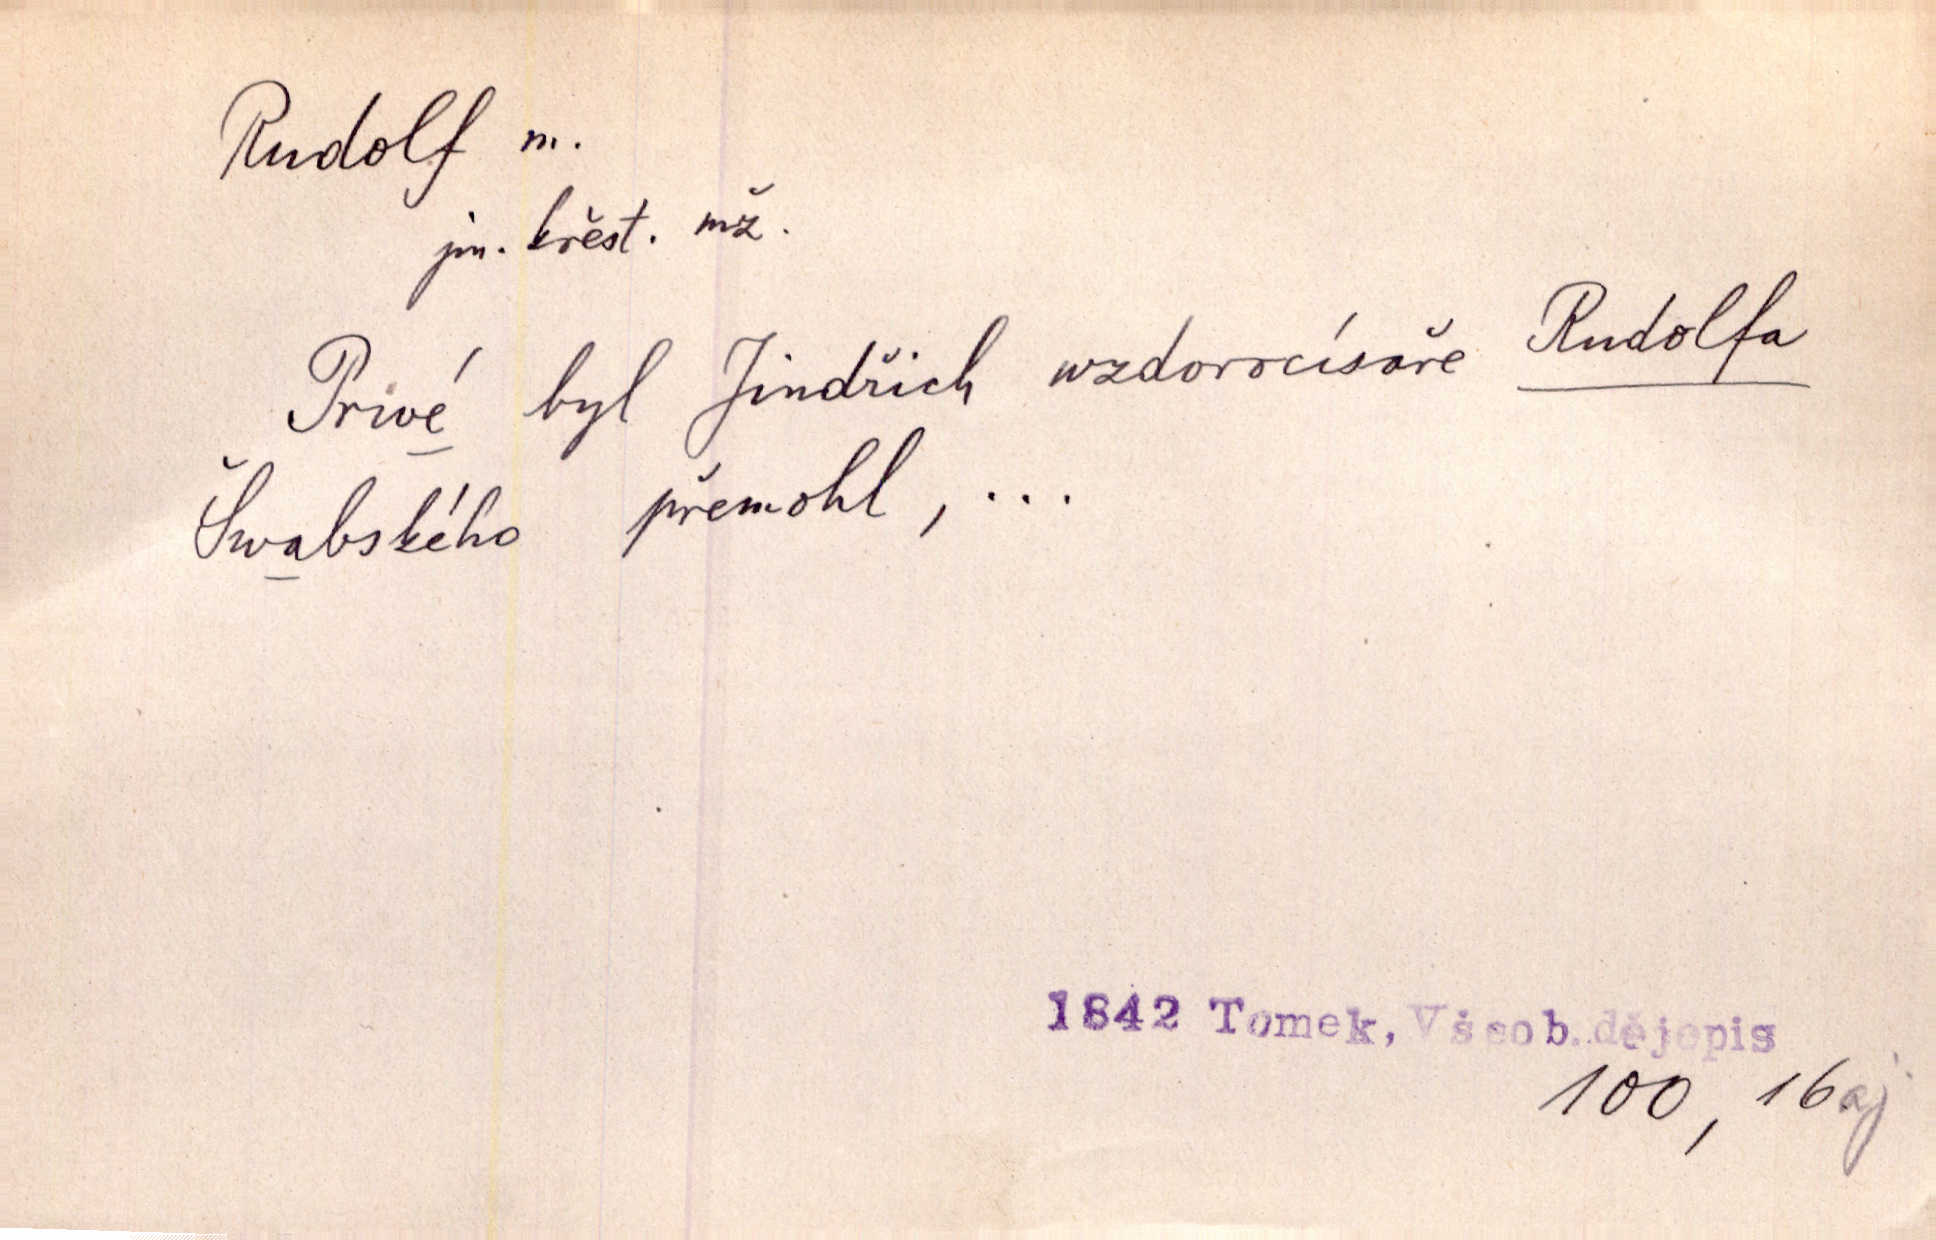 Rudolf m.
jm. křest. mž.
Privé byl Jindřich wzdorocísaře Rudolfa
Šwabského přemohl, ...
1842 Tomek, Všeob. dějepis
100, 16 aj